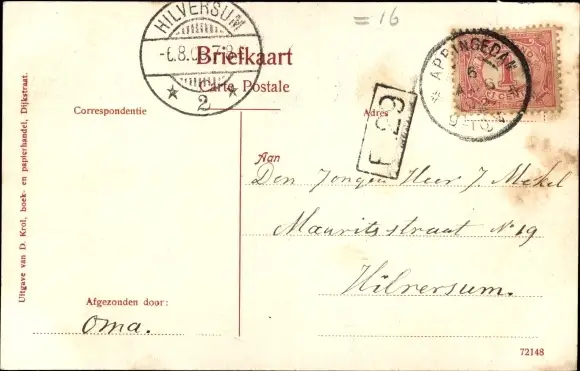 = 16
HILVERSUM
-6.8.0 7-8
2
Briefkaart
Carte Postale
APPINGEDAM
6
1
Correspondentie
Adres
F 29
Aan
Den Jongen Heer J. Mekel
Mauritsstraat No 19
Hilversum.
Afgezonden door:
Oma.
Uitgave van D. Krol, boek- en papierhandel, Dijkstraat.
72148